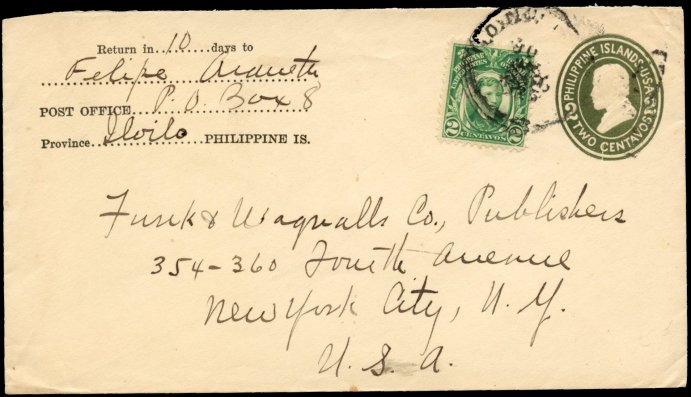 Return in 10 days to
Felipe Araneta
POST OFFICE P. O. Box 8
Province Iloilo PHILIPPINE IS.
PHILIPPINE ISLANDS, U.S.A.
2 TWO CENTAVOS
2 CENTAVOS 2
Funk & Wagnalls Co., Publishers
354-360 Fourth Avenue
New York City, N. Y.
U. S. A.